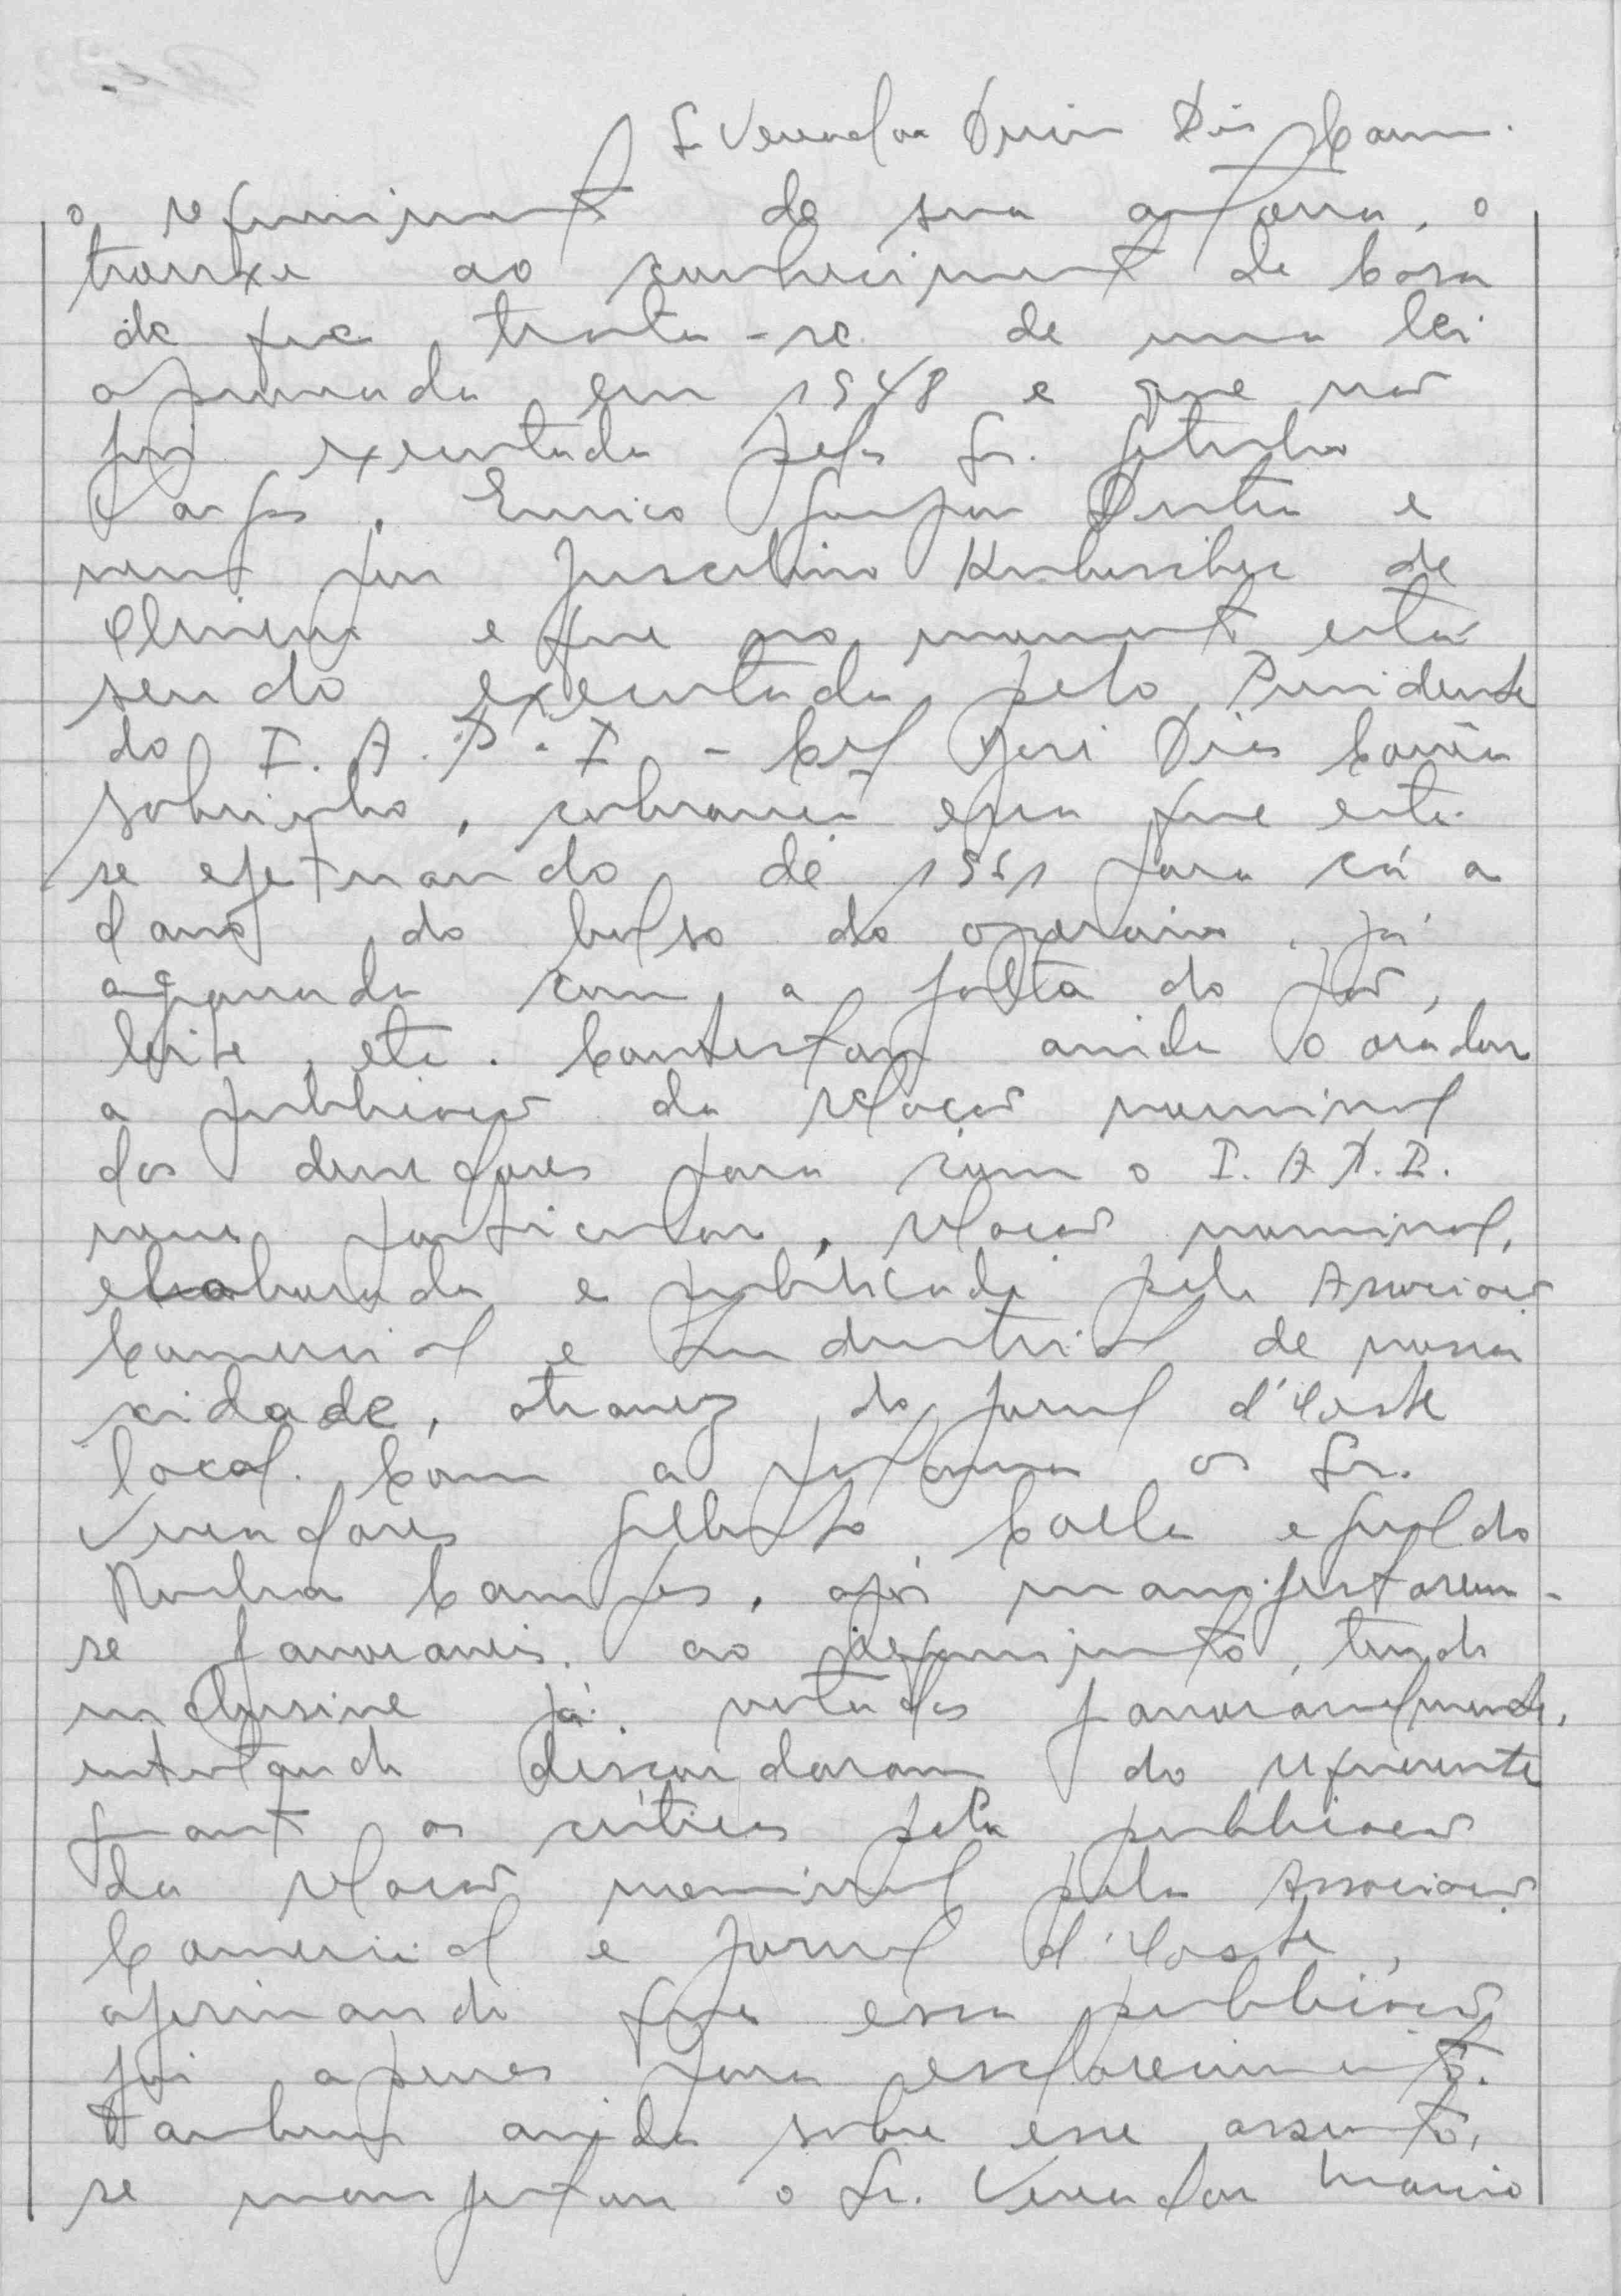 Sr Vereador Dias
o requerimento de sua autoria, o
trouxe ao conhecimento da Casa
de que trata-se de uma lei
aprovada em 1948 e que não
foi executada pelo Sr. Getulio
Vargas, Eurico Gaspar Dutra e
nem por Juscelino Kubischec de
Oliveira e que no momento está
sendo executada pelo Presidente
do I.A.P.I - Cel José Dias Corrêa
Sobrinho, cobrança essa que esta
se efetuando de 1961 para cá a
dano do bolso do operario, já
agravada com a falta do pão,
leite, etc. Contestou ainda o orador
a publicação da relação nominal
dos devedores para com o I.A.P.I.
relação nominal,
elaborada e publicada pela Associação
Comercial e Industrial de nossa
cidade, atravez do jornal d'Oeste
local. Com a palavra os Sr.
Vereadores Gilberto e Geraldo
Rocha Campos, após manifestarem-
se favoraveis ao requerimento, tendo
inclusive já votados favoravelmente,
entretando discordaram do requerente
quanto as críticas pela publicação
da relação nominal pela Associação
Comercial e Jornal d'Oeste,
afirmando que essa publicação
foi apenas para esclarecimento.
Tambem ainda sobre esse assunto,
se manifestou o Sr. Vereador Mario